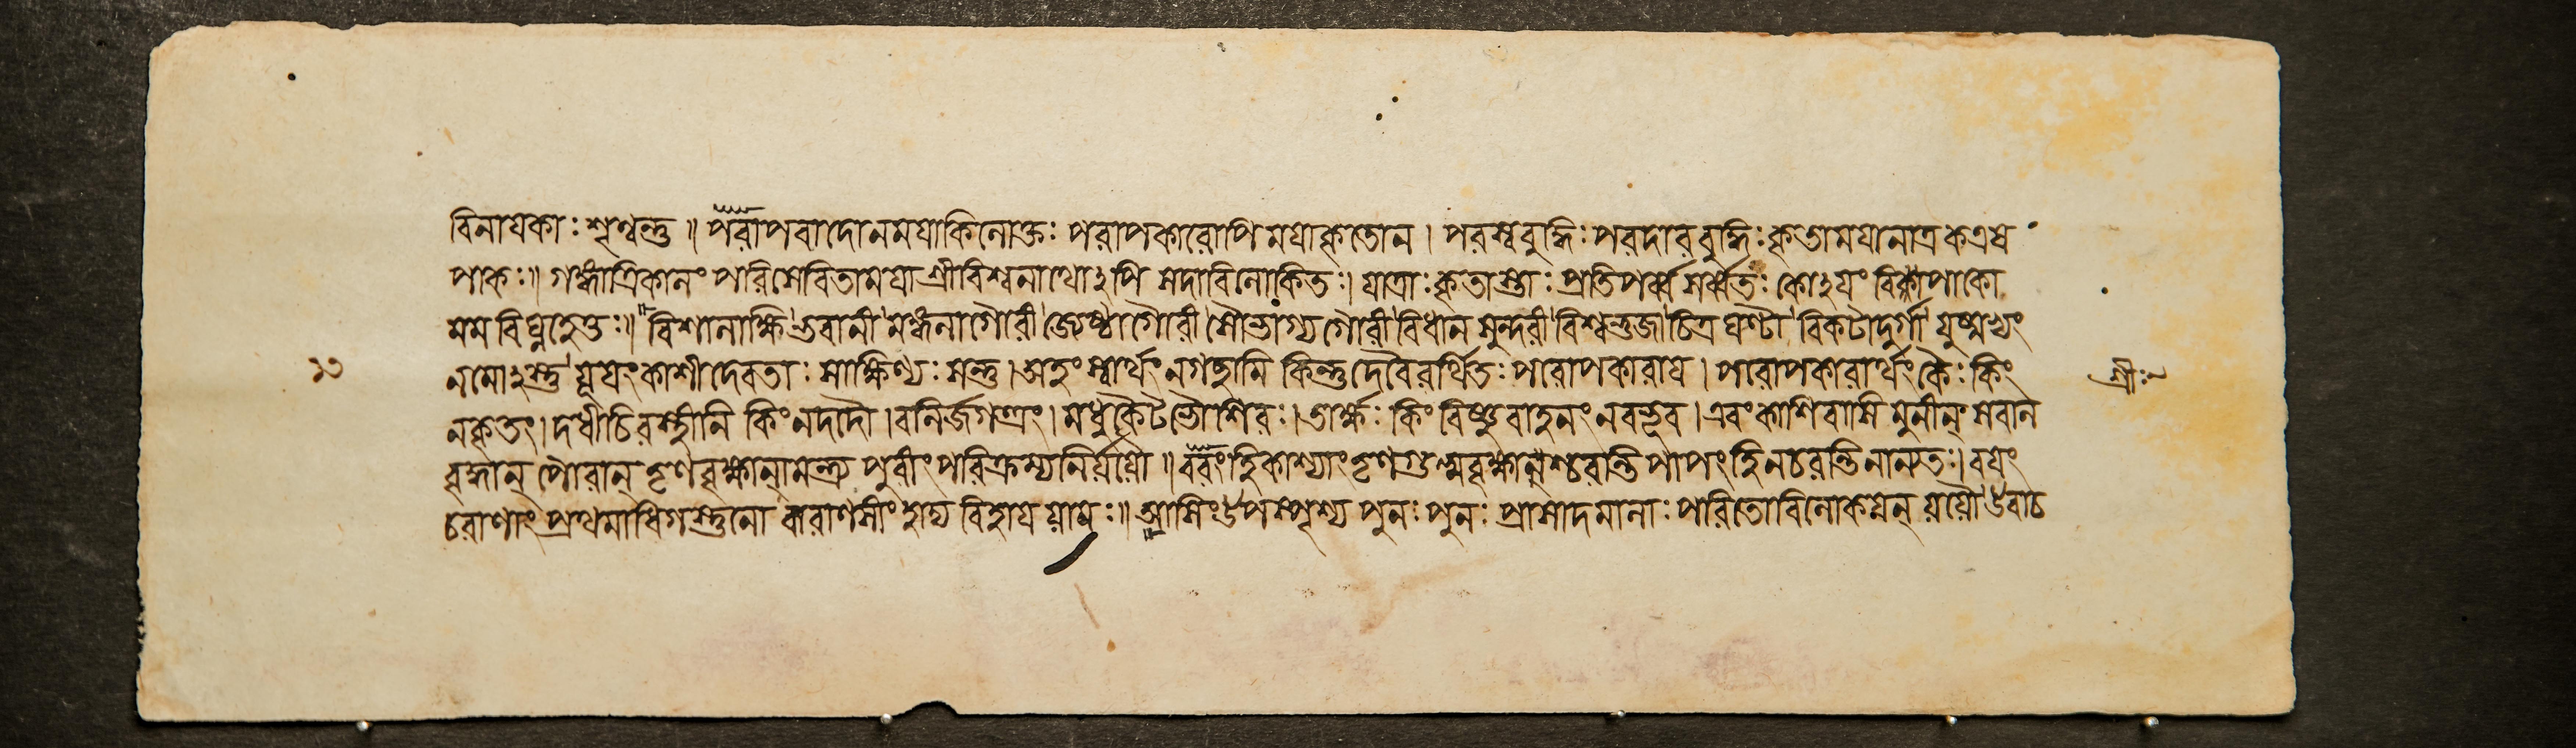 বিনায়কাঃ শৃণ্বন্তু ॥ পরাপবাদো ন ময়া কিলোক্তঃ পরাপকারোপি ময়া কৃতো ন । পরস্ববুদ্ধিঃ পরদারবুদ্ধিঃ কৃতা ময়া নাত্র ক এষ
পাকঃ॥ গঙ্গা ত্রিকালং পরিসেবিতা ময়া শ্রীবিশ্বনাথোঽপি সদা বিলোকিতঃ। যাত্রাঃ কৃতাস্তাঃ প্রতিপর্ব্ব সর্ব্বতঃ কোঽয়ং বিপাকো
মম বিঘ্নহেতুঃ॥ বিশালাক্ষি ভবানী মঙ্গলাগৌরী জ্যেষ্ঠাগৌরী সৌভাগ্যগৌরী বিধানসুন্দরী বিশ্বভুজা চিত্রঘণ্টা বিকটাদুর্গা যুষ্মভ্যং
নমোঽস্তু যূয়ং কাশীদেবতাঃ সাক্ষিণ্যঃ সন্তু । অহং স্বার্থং ন গচ্ছামি কিন্তু দেবৈরর্থিতঃ পরোপকারায় । পরোপকারার্থং কৈঃ কিং
ন কৃতং। দধীচিরস্থীনি কিং ন দদৌ । বলির্জগত্রং। মধুকৈটভৌ শিরঃ। তার্ক্ষঃ কিং বিষ্ণুবাহনং ন বভূব । এবং কাশিবাসি মুনীন্ সবাল
বৃদ্ধান্ পৌরান্ তৃণবৃক্ষানামন্ত্র্য পুরীং পরিক্রম্য নির্যযৌ ॥ বরং হি কাশ্যাং তৃণগুল্মবৃক্ষাশ্চরন্তি পাপং হি ন চরন্তি নান্যতঃ। বয়ং
চরাণাং প্রথমা ধিগস্তু নো বারাণসীং হাদ্য বিহায় যামঃ॥ অসিং উপস্পৃশ্য পুনঃ পুনঃ প্রাসাদমালাঃ পরিতো বিলোকয়ন্ যযৌ উবাচ
শ্রীঃ